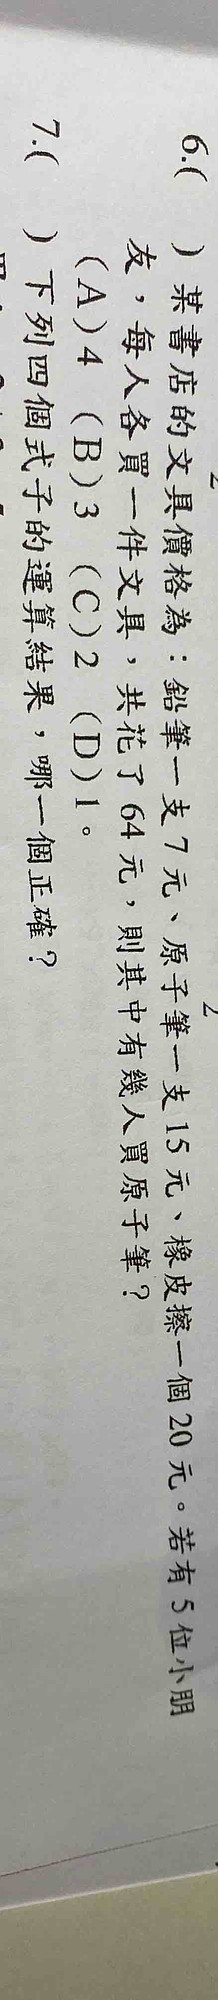 6.(　　) 某書店的文具價格為：鉛筆一支 7 元、原子筆一支 15 元、橡皮擦一個 20 元。若有 5 位小朋
友，每人各買一件文具，共花了 64 元，則其中有幾人買原子筆？
(A) 4 (B) 3 (C) 2 (D) 1。
7.(　　) 下列四個式子的運算結果，哪一個正確？